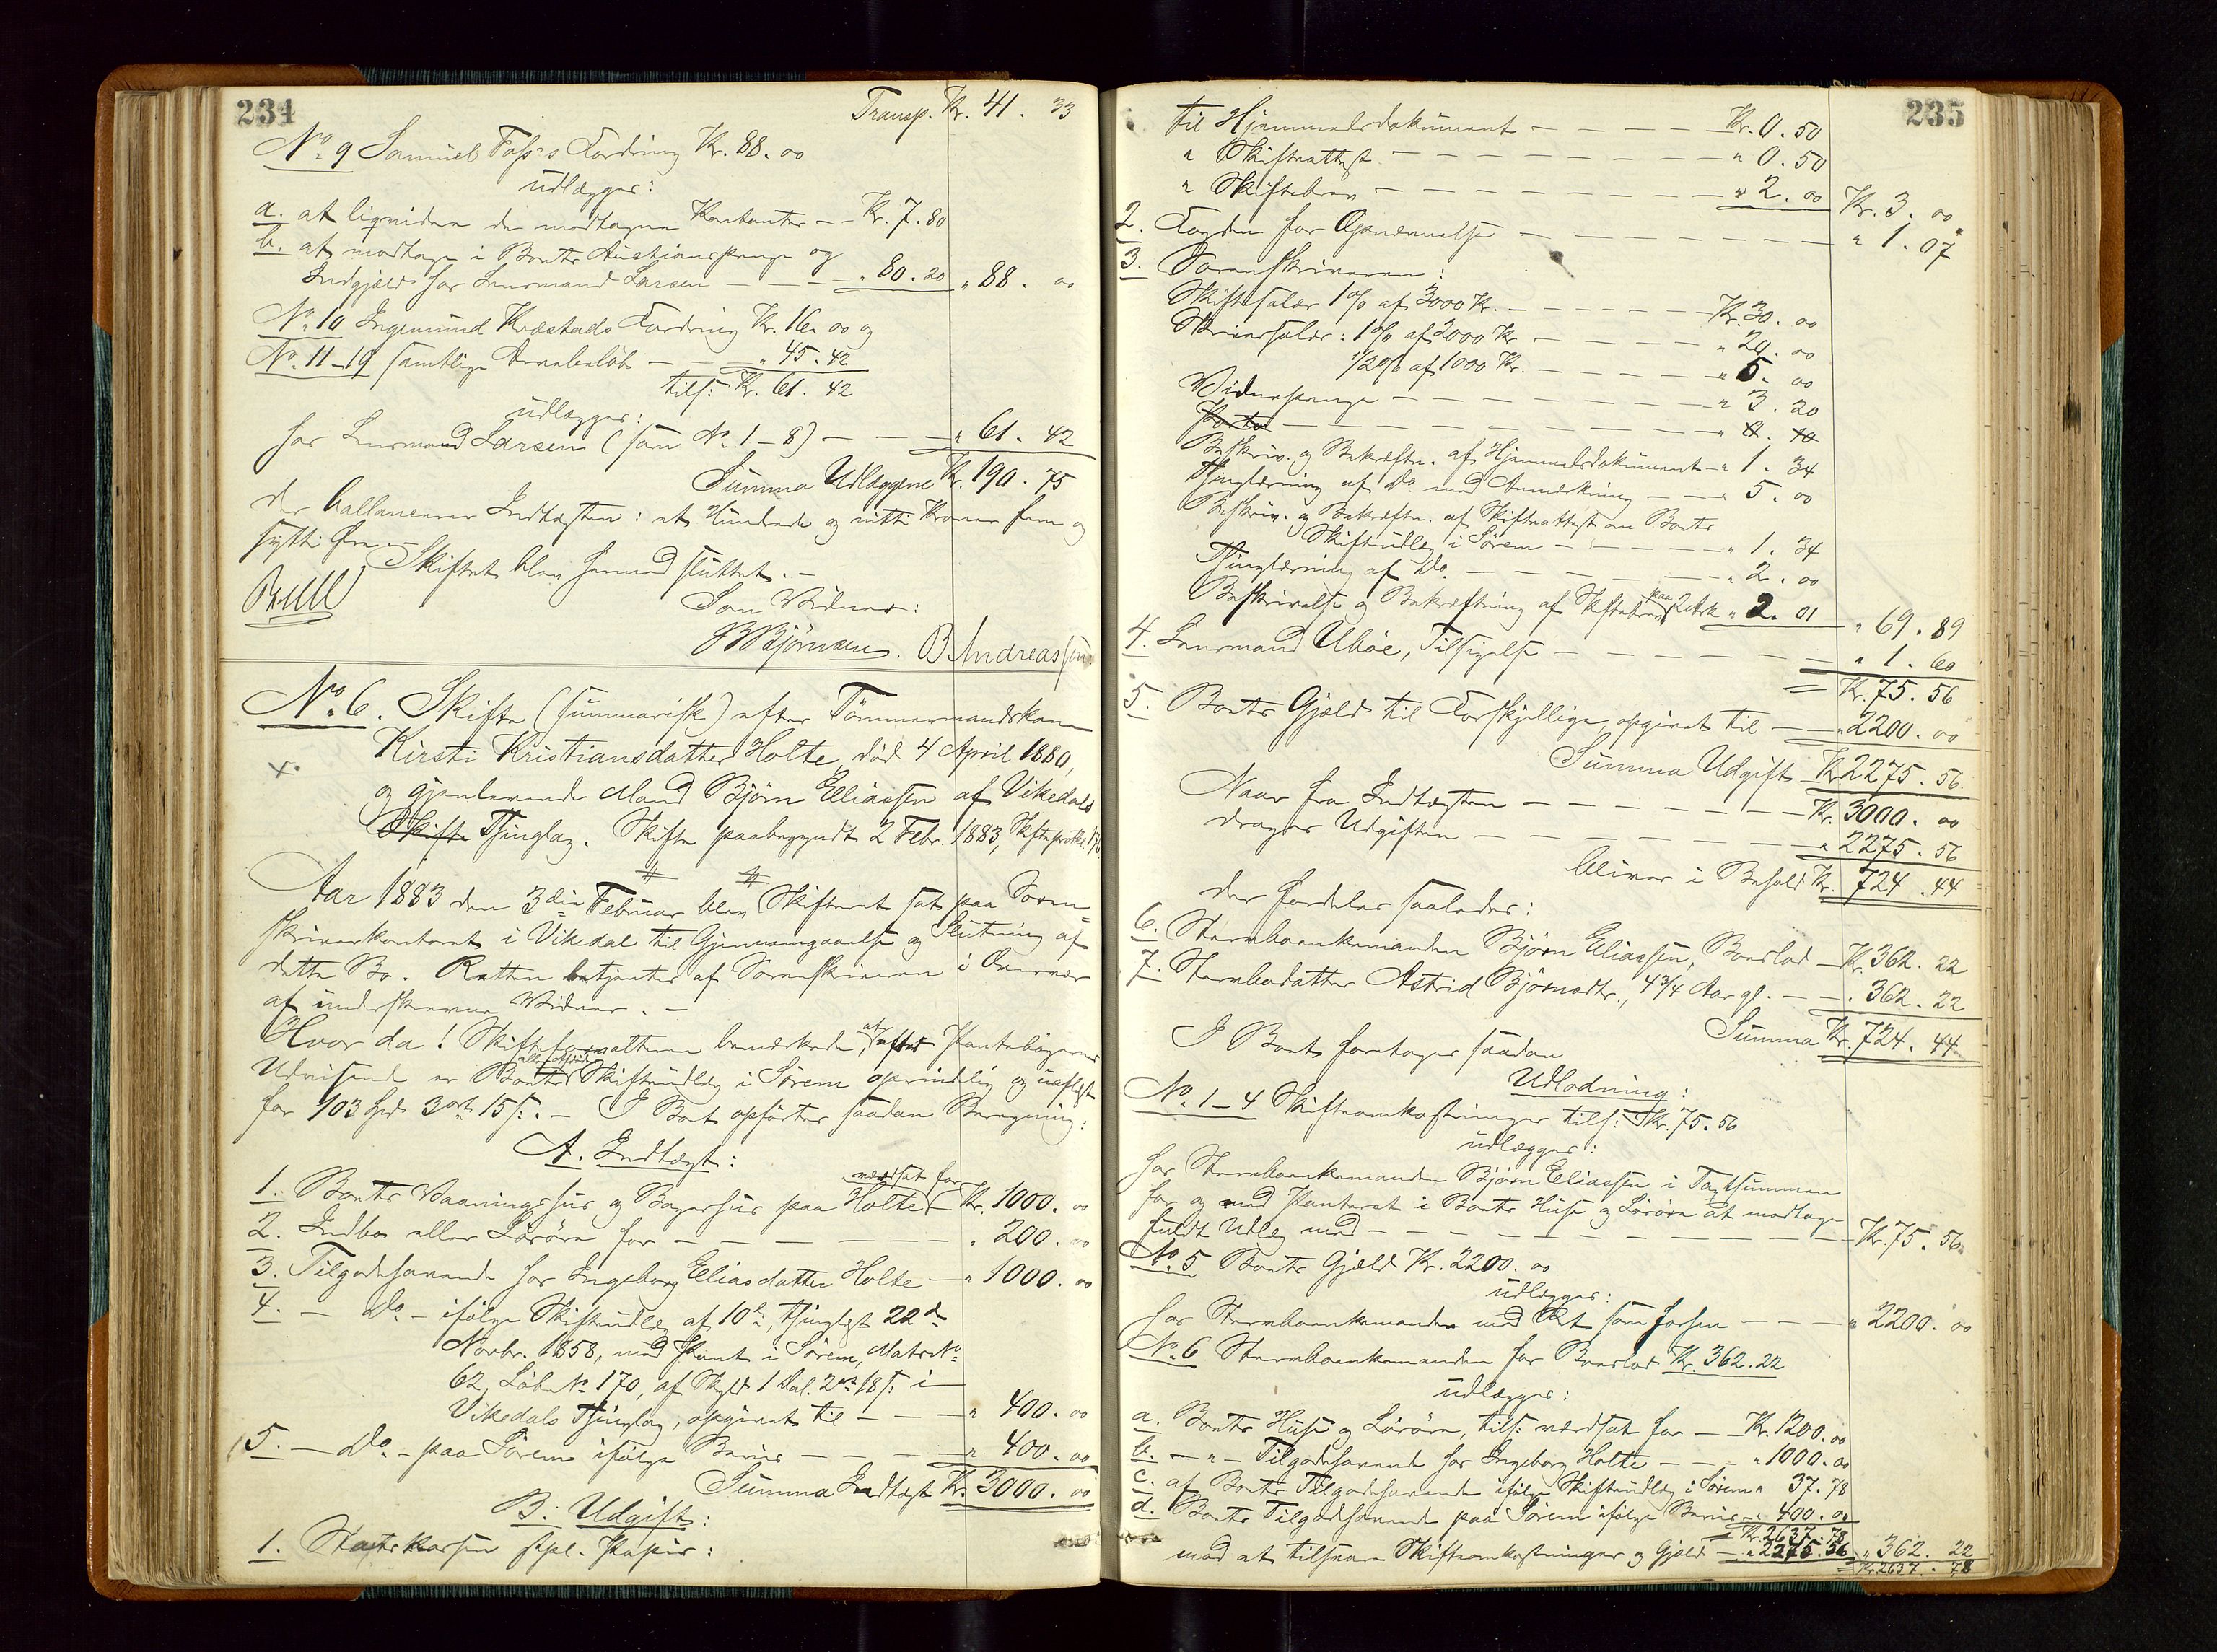 234
Transp. Kr. 41. 33
No 9 Samuel Foss's Fordring Kr. 88. 00
udlægges:
a. at liqvidere de modtagne Kontanter — Kr. 7. 80
b. at modtage i Boets Auctionspenge og
Indgjæld hos Lensmand Larsen — — — " 80. 20 " 88. 00
No 10 Ingemund Fordring Kr. 16. 00 og
No 11-19 samtlige — — " 45. 42
tils: Kr. 61. 42
udlægges:
hos Lensmand Larsen (som No 1-8) — — — " 61. 42
Summa Udlæggene Kr. 190. 75
der ballancerer Indtægten: et Hundrede og nitti Kroner fem og
sytti Øre. —
Skiftet blev hermed sluttet. —
Som Vidner:
BBjörnsen. B Andreassen
No 6. Skifte (summarisk) efter Tömmermandskone
Kirsti Kristiansdatter Holte, död 4 April 1880,
x.
og gjenlevende Mand Björn Elliassen af Vikedals
Skifte Thinglag. Skifte paabegyndt 2 Febr. 1883, Skifteprotkl.
Aar 1883 den 3die Februar blev Skifteret sat paa Soren-
skriverkontoret i Vikedal til Gjennemgaaelse og Slutning af
dette Bo. Retten betjentes af Sorenskriveren i Overvær
af underskrevne Vidner. —
Hvor da! Skifteforvalteren bemærkede, at efter Pantebögernes
Udvisende er Boets Skifteudlæg i Sörem oprindelig og uaflæst
for 103 Spd. 3 ort 15 s. — I Boet opförtes saadan Beregning:
A. Indtægt:
1. Boets Vaaningshus og Bagerhus paa Holte værdsat for Kr. 1000. 00
2. Indbo eller Lösöre for — — — — — " 200. 00
3. Tilgodehavende hos Ingeborg Eliasdatter Holte — " 1000. 00
4. — Do — ifölge Skifteudlæg af 10de, thinglæst 22de
Novbr. 1858, med Pant i Sörem, Matr. No
62, Löbe No 170, af Skyld 1 Dal. 2 ort 18 s. i
Vikedals Thinglag, opgivet til — — — " 400. 00
5. — Do — paa Sörem ifölge Bevis — — — " 400. 00
Summa Indtægt Kr. 3000. 00
B. Udgift:
1. Statskassen stpl. Papir:
235
til Hjemmelsdokument — — — — Kr. 0. 50
" Skifteattest — — — — — — " 0. 50
" Skiftebrev — — — — — — " 2. 00 Kr. 3. 00
2. Fogden for Opnævnelse — — — — — — " 1. 07
3. Sorenskriveren:
Skiftesalær 1 % af 3000 Kr. — — — — Kr. 30. 00
Skriversalær: 1 % af 2000 Kr — — — — " 20. 00
1/2 % af 1000 Kr. — — — — " 5. 00
Vidnepenge — — — — — — " 3. 20
Porto — — — — — — " 0. 40
Beskriv. og Bekræftn. af Hjemmelsdokument — " 1. 34
Thinglæsning af Do. med Anmerkning — — " 5. 00
Beskriv. og Bekræftn. af Skifteattest om Boets
Skifteudlæg i Sörem — — — — " 1. 34
Thinglæsning af Do. — — — — — " 2. 00
Beskrivelse og Bekræftning af Skiftebrev paa 2 Ark " 2. 01 " 69. 89
4. Lensmand Ubøe, Tilsigelse — — — — — " 1. 60
= Kr. 75. 56
5. Boets Gjæld til Forskjellige, opgivet til — — " 2200. 00
Summa Udgift Kr 2275. 56.
Naar fra Indtægten — — — — — Kr. 3000. 00
drages Udgiften — — — — — " 2275. 56
bliver i Behold Kr. 724. 44
der fordeles saaledes:
6. Stervboenkemanden Björn Eliassen, Boeslod — Kr. 362. 22
7. Stervbodatter Astrid Björnsdtr., 4 3/4 Aar gl. — — " 362. 22
Summa Kr. 724. 44.
I Boet foretages saadan
Udlodning:
No 1-4 Skifteomkostninger tils: Kr. 75. 56
udlægges:
hos Stervboenkemanden Björn Elliassen i Taxtsummen
for og med Panteret i Boets Huse og Lösöre at modtage
fuldt Udlæg med — — — — — — — — Kr. 75. 56
No. 5 Boets Gjæld Kr. 2200. 00
udlægges:
hos Stervboenkemanden med Ret som forhen — — — " 2200. 00
No. 6 Stervboenkemanden for Boeslod Kr. 362. 22
udlægges:
a. Boets Huse og Lösöre, tils: værdsat for — Kr. 1200. 00
b. — " — Tilgodehavende hos Ingeborg Holte — — — " 1000. 00
c. af Boets Tilgodehavende ifölge Skifteudlæg i Sörem " 37. 78
d. Boets Tilgodehavende paa Sörem ifölge Bevis — " 400. 00
= Kr. 2637. 78
mod at tilsvare Skifteomkostninger og Gjæld — " 2275. 56 " 362. 22
= Kr. 2637. 78